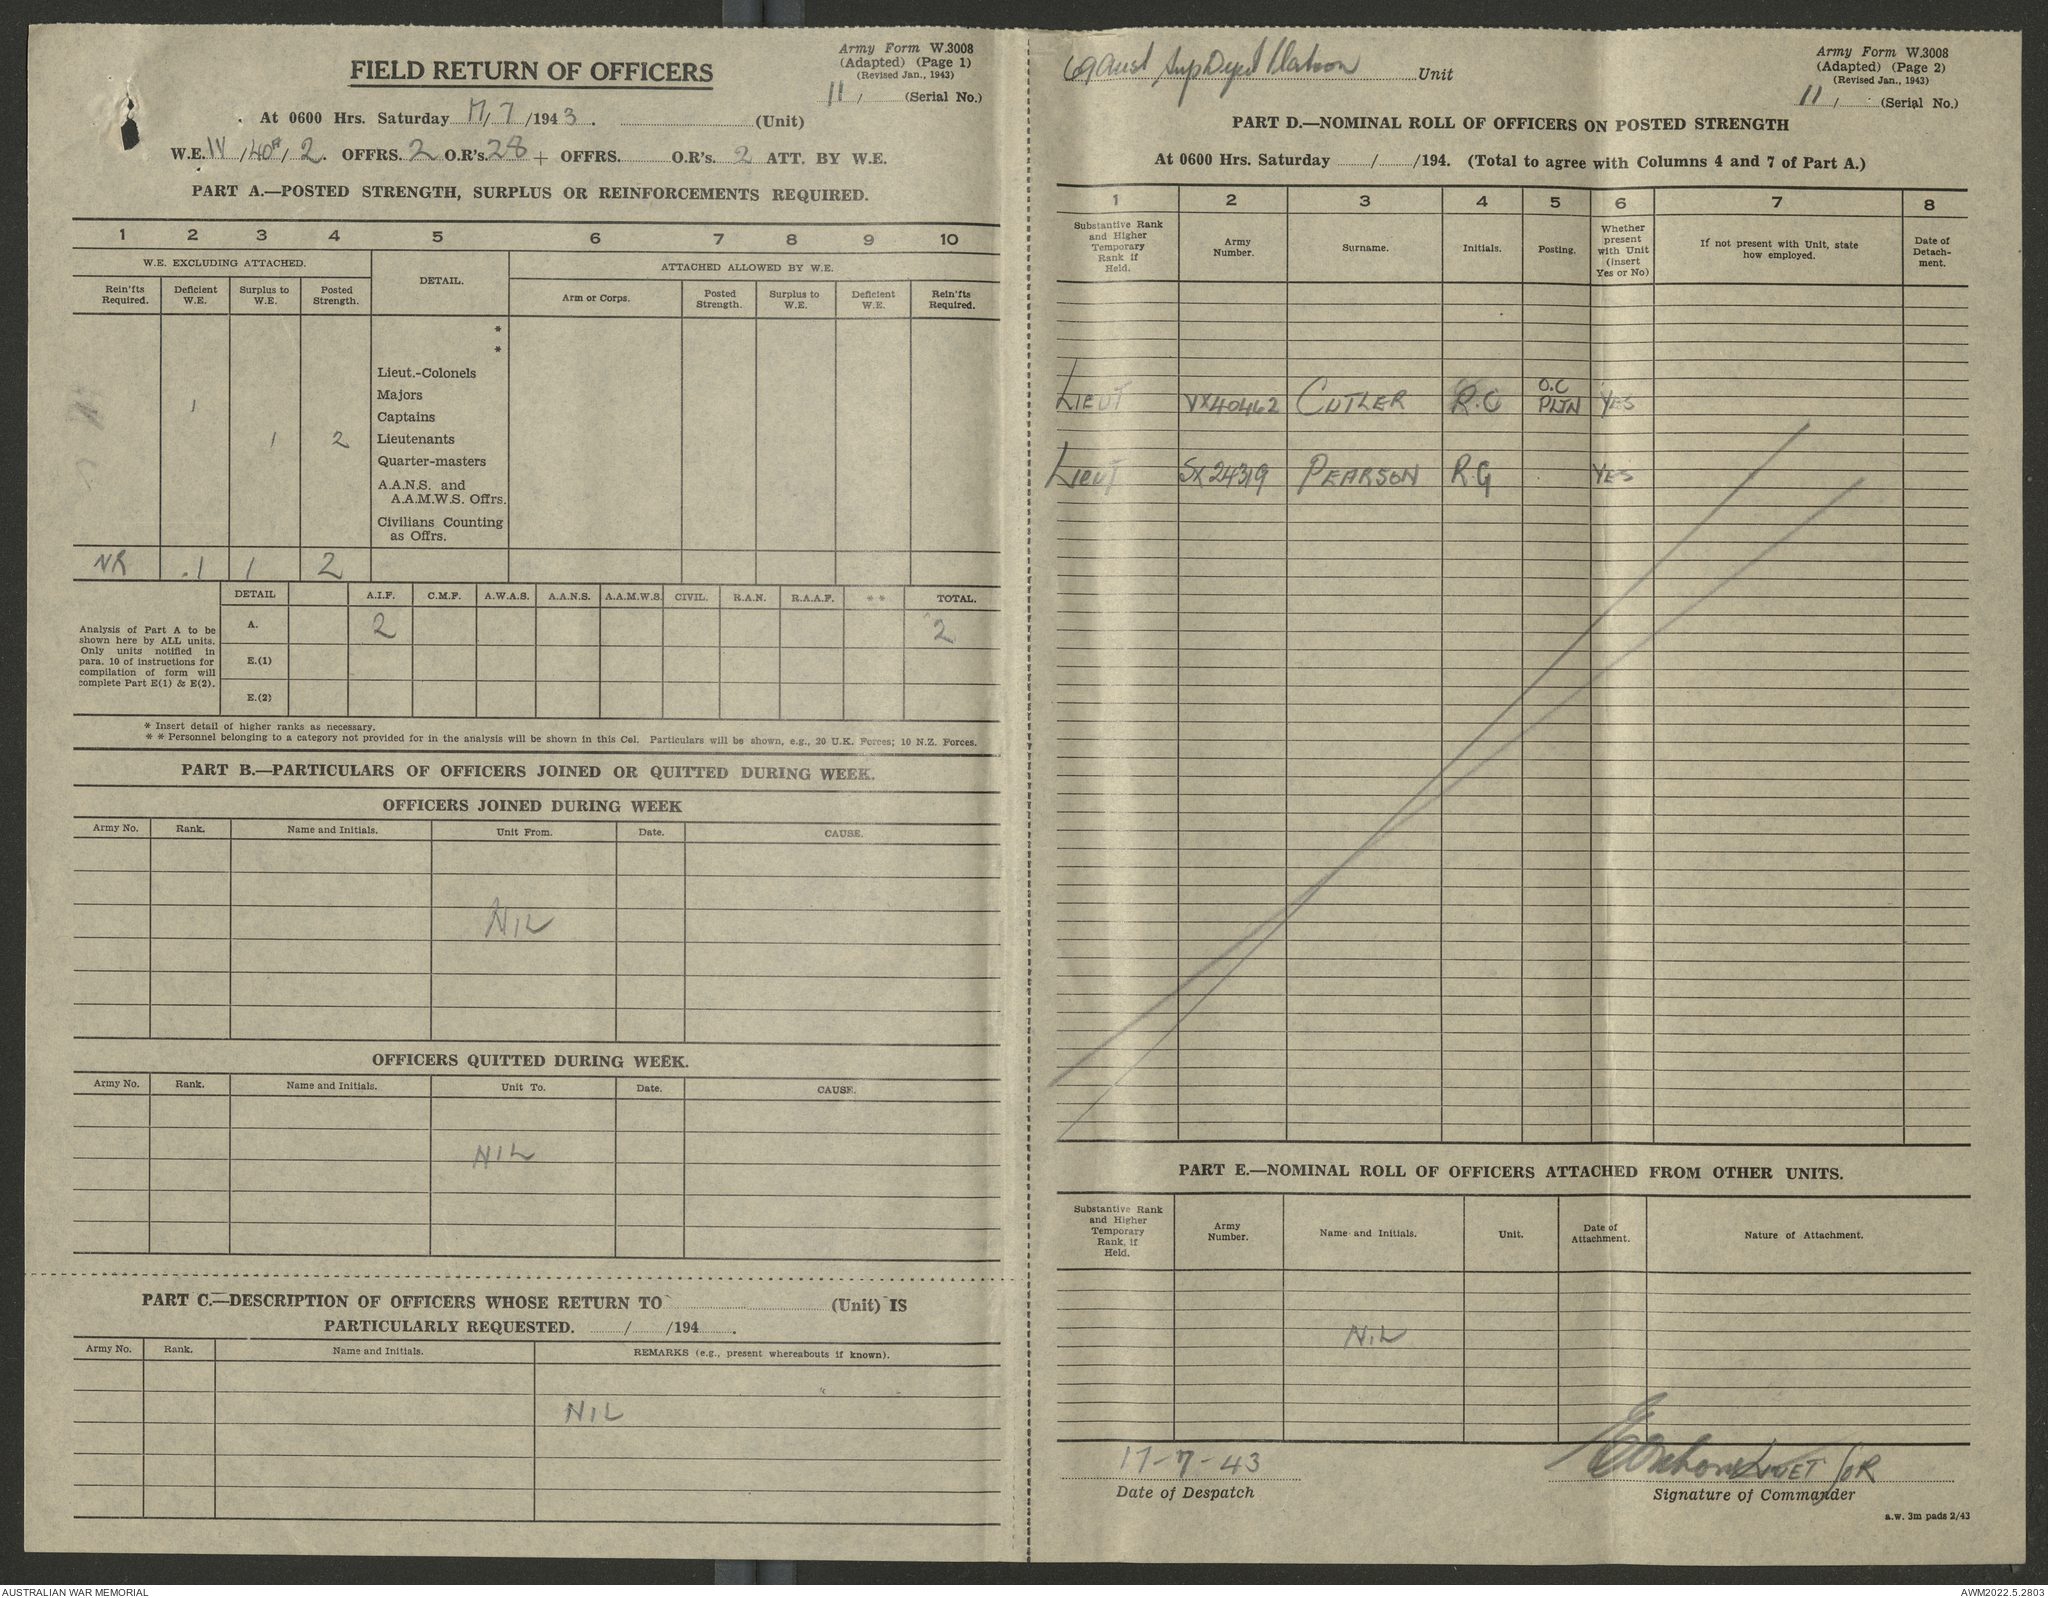 Army Form W.3008
(Adapted) (Page 1)
(Revised Jan., 1943)
FIELD RETURN OF OFFICERS
11, (Serial No.)
At 0600 Hrs. Saturday 17/7/1943. (Unit)
W.E. IV /40A/ 2. OFFRS. 2 O.R's. 28 + OFFRS. O.R's. 2 ATT. BY W.E.
PART A.—POSTED STRENGTH, SURPLUS OR REINFORCEMENTS REQUIRED.
1 2 3 4 5 6 7 8 9 10
W.E. EXCLUDING ATTACHED. DETAIL. ATTACHED ALLOWED BY W.E.
Rein'fts Required. Deficient W.E. Surplus to W.E. Posted Strength. Arm or Corps. Posted Strength. Surplus to W.E. Deficient W.E. Rein'fts Required.
*
*
Lieut.-Colonels
Majors
1 Captains
1 2 Lieutenants
Quarter-masters
A.A.N.S. and
A.A.M.W.S. Offrs.
Civilians Counting
as Offrs.
NR .1 1 2
DETAIL A.I.F. C.M.F. A.W.A.S. A.A.N.S. A.A.M.W.S. CIVIL. R.A.N. R.A.A.F. ** TOTAL.
Analysis of Part A to be
shown here by ALL units.
Only units notified in
para. 10 of instructions for
compilation of form will
complete Part E(1) & E(2).
A. 2 2
E.(1)
E.(2)
* Insert detail of higher ranks as necessary.
** Personnel belonging to a category not provided for in the analysis will be shown in this Col. Particulars will be shown, e.g., 20 U.K. Forces; 10 N.Z. Forces.
PART B.—PARTICULARS OF OFFICERS JOINED OR QUITTED DURING WEEK.
OFFICERS JOINED DURING WEEK
Army No. Rank. Name and Initials. Unit From. Date. CAUSE.
NIL
OFFICERS QUITTED DURING WEEK.
Army No. Rank. Name and Initials. Unit To. Date. CAUSE.
NIL
PART C.—DESCRIPTION OF OFFICERS WHOSE RETURN TO (Unit) IS
PARTICULARLY REQUESTED. / /194 .
Army No. Rank. Name and Initials. REMARKS (e.g., present whereabouts if known).
NIL
69 Aust Sup Depot Platoon Unit
Army Form W.3008
(Adapted) (Page 2)
(Revised Jan., 1943)
11, (Serial No.)
PART D.—NOMINAL ROLL OF OFFICERS ON POSTED STRENGTH
At 0600 Hrs. Saturday / /194. (Total to agree with Columns 4 and 7 of Part A.)
1 2 3 4 5 6 7 8
Substantive Rank and Higher Temporary Rank if Held. Army Number. Surname. Initials. Posting. Whether present with Unit (Insert Yes or No) If not present with Unit, state how employed. Date of Detach-ment.
LIEUT VX40462 CUTLER R.C O.C PLTN YES
LIEUT SX24319 PEARSON R.G YES
PART E.—NOMINAL ROLL OF OFFICERS ATTACHED FROM OTHER UNITS.
Substantive Rank and Higher Temporary Rank, if Held. Army Number. Name and Initials. Unit. Date of Attachment. Nature of Attachment.
NIL
17-7-43
Date of Despatch
FOR
Signature of Commander
a.w. 3m pads 2/43
AUSTRALIAN WAR MEMORIAL
AWM2022.5.2803